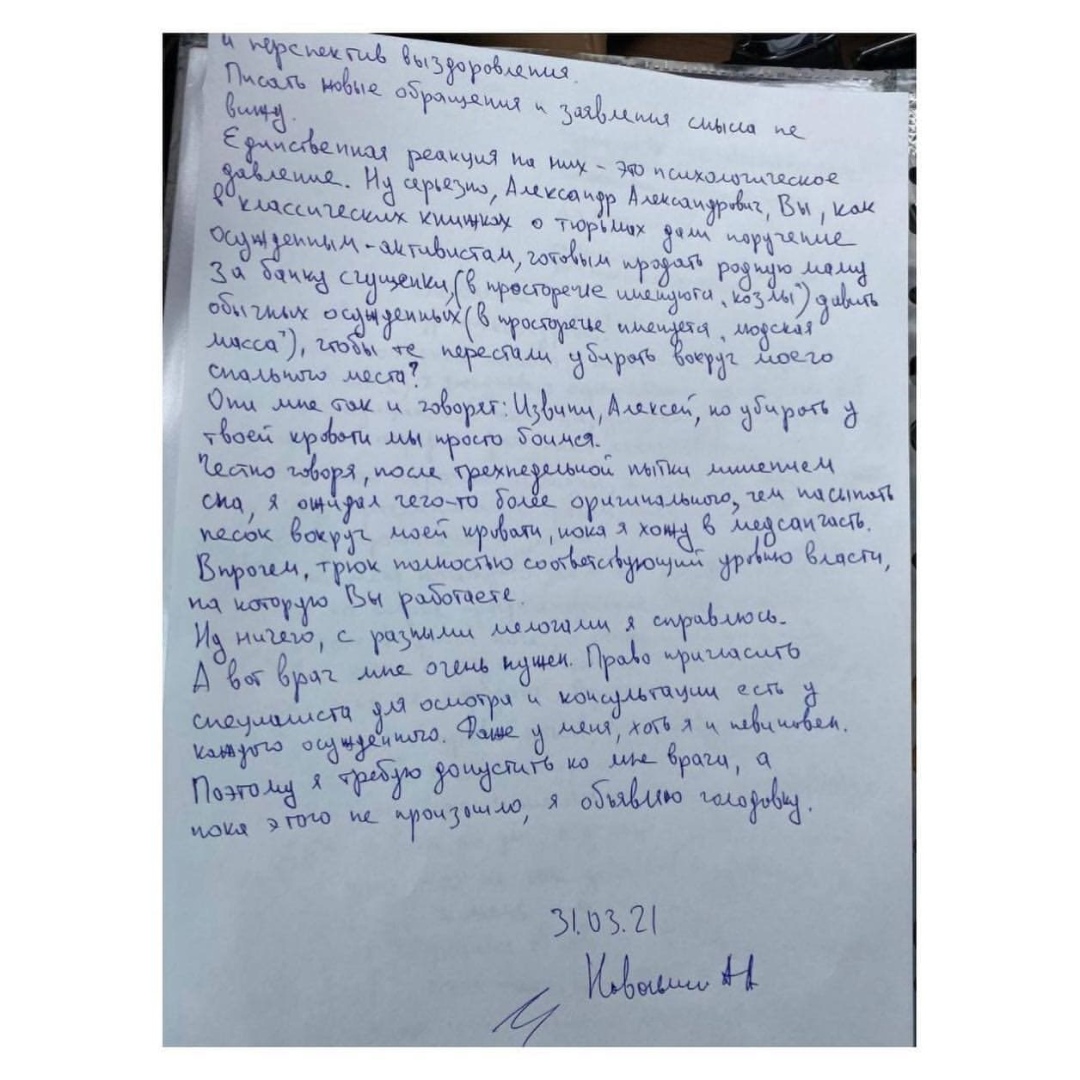 и перспектив выздоровления.
Писать новые обращения и заявления смысла не
вижу.
Единственная реакция на них – это психологическое
давление. Ну серьезно, Александр Александрович, Вы, как
в классических книжках о тюрьмах дали поручение
осужденным-активистам, готовым продать родную маму
за банку сгущенки, (в просторечье именуются „козлы") давить
обычных осужденных (в просторечье именуется „людская
масса"), чтобы те перестали убирать вокруг моего
спального места?
Они мне так и говорят: Извини, Алексей, но убирать у
твоей кровати мы просто боимся.
Честно говоря, после трехнедельной пытки лишением
сна, я ожидал чего-то более оригинального, чем насыпать
песок вокруг моей кровати, пока я хожу в медсанчасть.
Впрочем, трюк полностью соответствующий уровню власти,
на которую Вы работаете.
Ну ничего, с разными мелочами я справлюсь.
А вот врач мне очень нужен. Право пригласить
специалиста для осмотра и консультации есть у
каждого осужденного. Даже у меня, хоть я и невиновен.
Поэтому я требую допустить ко мне врача, а
пока этого не произошло, я объявляю голодовку.
31.03.21
Навальный АА